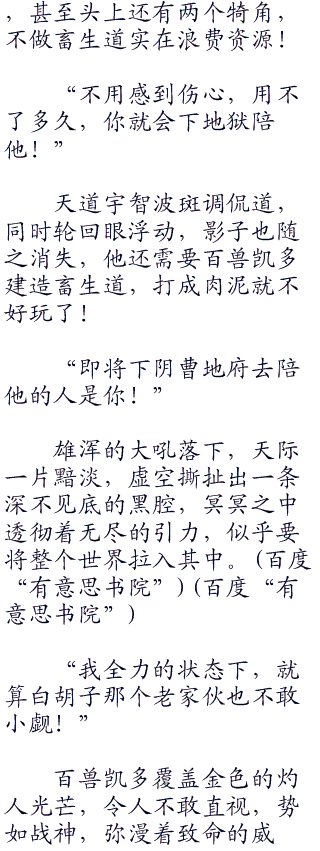 ，甚至头上还有两个犄角，
不做畜生道实在浪费资源！
“不用感到伤心，用不
了多久，你就会下地狱陪
他！”
天道宇智波斑调侃道，
同时轮回眼浮动，影子也随
之消失，他还需要百兽凯多
建造畜生道，打成肉泥就不
好玩了！
“即将下阴曹地府去陪
他的人是你！”
雄浑的大吼落下，天际
一片黯淡，虚空撕扯出一条
深不见底的黑腔，冥冥之中
透彻着无尽的引力，似乎要
将整个世界拉入其中。(百度
“有意思书院”)(百度“有
意思书院”)
“我全力的状态下，就
算白胡子那个老家伙也不敢
小觑！”
百兽凯多覆盖金色的灼
人光芒，令人不敢直视，势
如战神，弥漫着致命的威